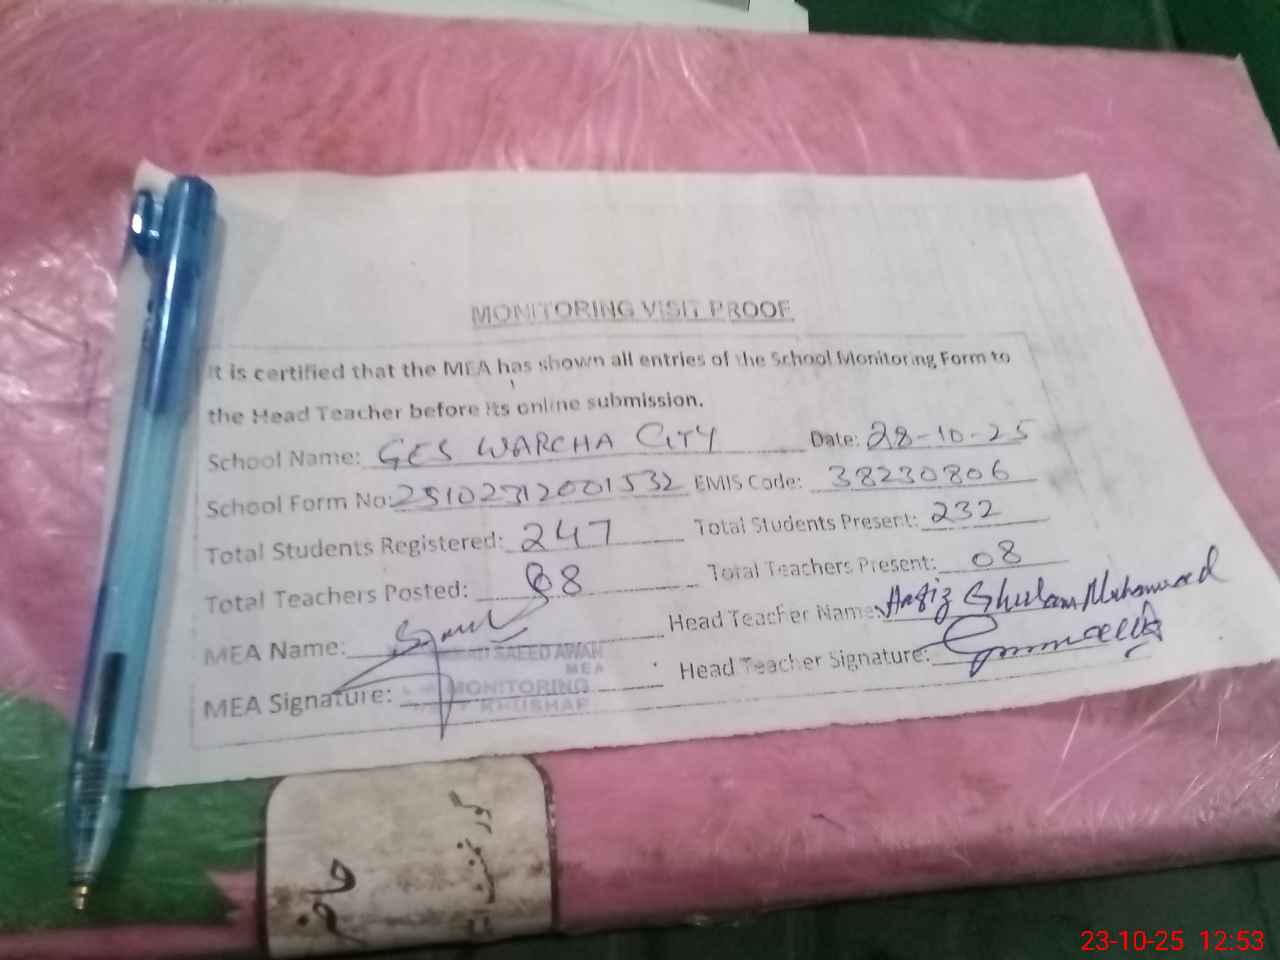 MONITORING VISIT PROOF
It is certified that the MEA has shown all entries of the School Monitoring Form to
the Head Teacher before its online submission.
School Name: GES WARCHA CITY Date: 28-10-25
School Form No: 25102312001532 EMIS Code: 38230806
Total Students Registered: 247 Total Students Present: 232
Total Teachers Posted: 08 Total Teachers Present: 08
MEA Name: Head Teacher Name: Hafiz Ghulam Muhammad
SAEED AWAN
MEA
MEA Signature: Head Teacher Signature:
MONITORING
KHUSHAB
گورنمنٹ
23-10-25 12:53